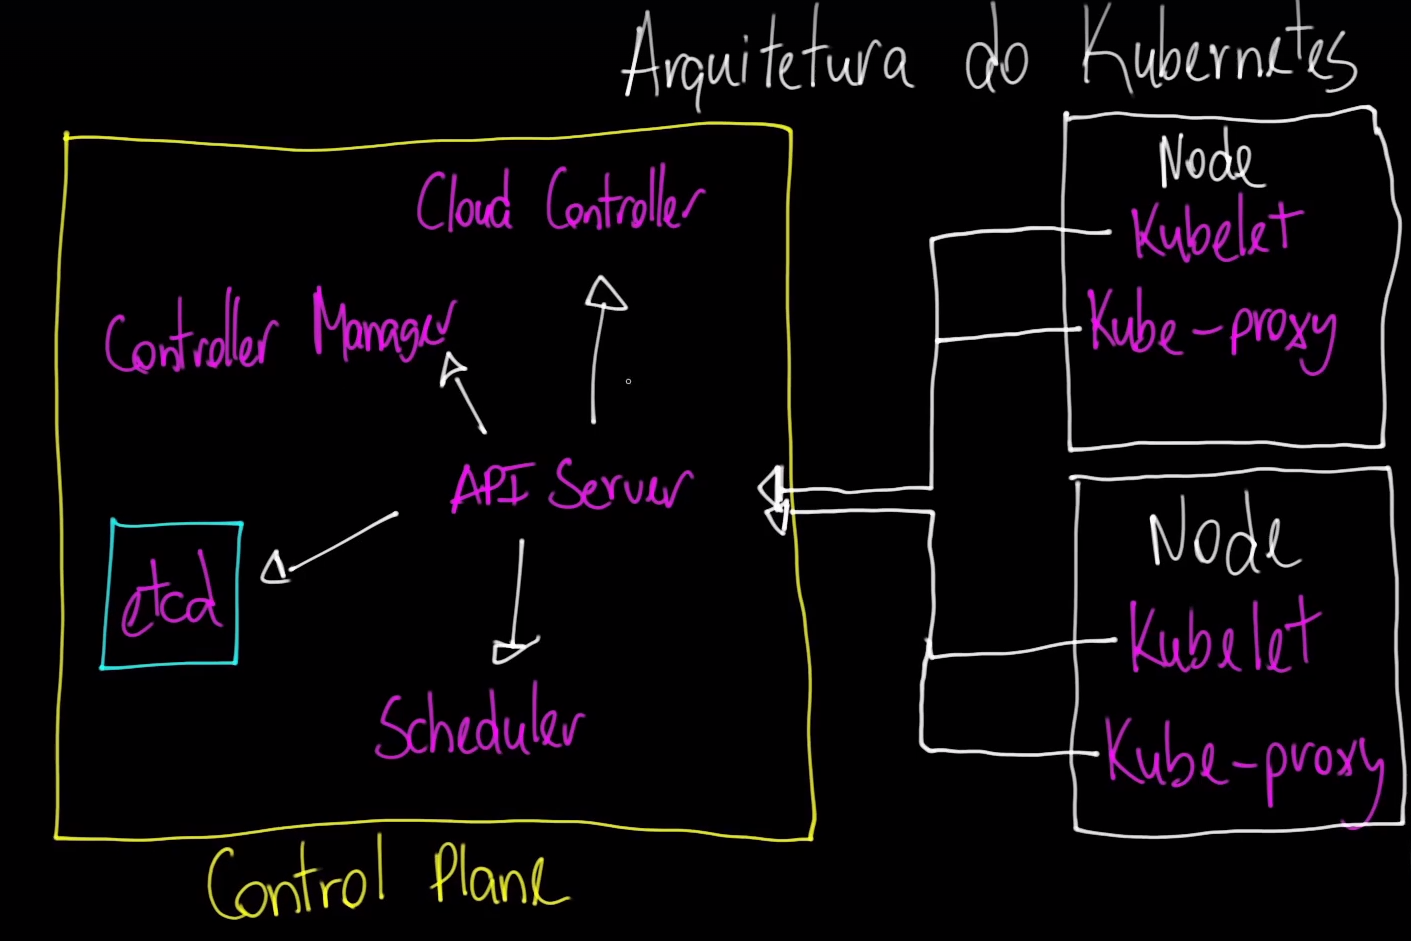 Arquitetura do Kubernetes
Cloud Controller
Controller Manager
API Server
etcd
Scheduler
Control Plane
Node
Kubelet
Kube-proxy
Node
Kubelet
Kube-proxy